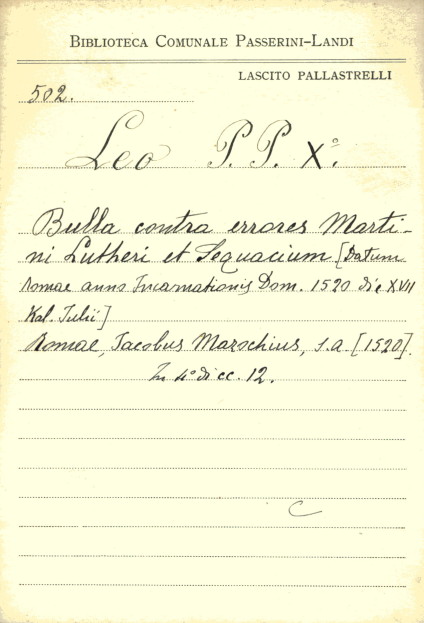 BIBLIOTECA COMUNALE PASSERINI-LANDI
LASCITO PALLASTRELLI
502.
Leo P. P. X°.
Bulla contra errores Marti-
ni Lutheri et Sequacium [Datum
Romae anno Incarnationis Dom. 1520 die XVII
Kal. Julii]
Romae, Jacobus Marschius, s. a. [1520].
In 4° di cc. 12.
C